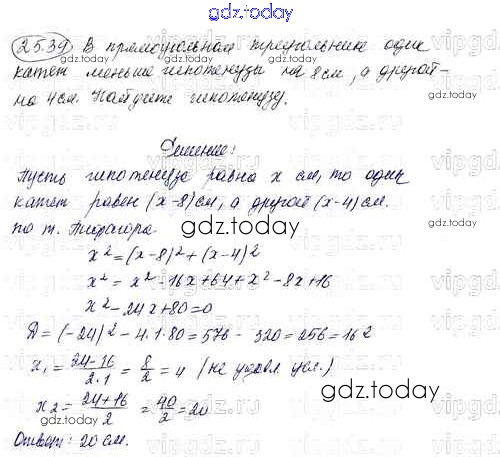 gdz.today
25.39 В прямоугольном треугольнике один
катет меньше гипотенузы на 8 см, а другой -
на 4 см. Найдите гипотенузу.
Решение:
Пусть гипотенуза равна x см, то один
катет равен (x-8) см, а другой (x-4) см.
по т. Пифагора.
x² = (x-8)² + (x-4)²
x² = x² - 16x + 64 + x² - 8x + 16
x² - 24x + 80 = 0
Д = (-24)² - 4·1·80 = 576 - 320 = 256 = 16²
x₁ = (24-16)/(2·1) = 8/2 = 4 (не удовл усл.)
x₂ = (24+16)/2 = 40/2 = 20
Ответ: 20 см.
gdz.today
gdz.today
gdz.today
gdz.today
gdz.today